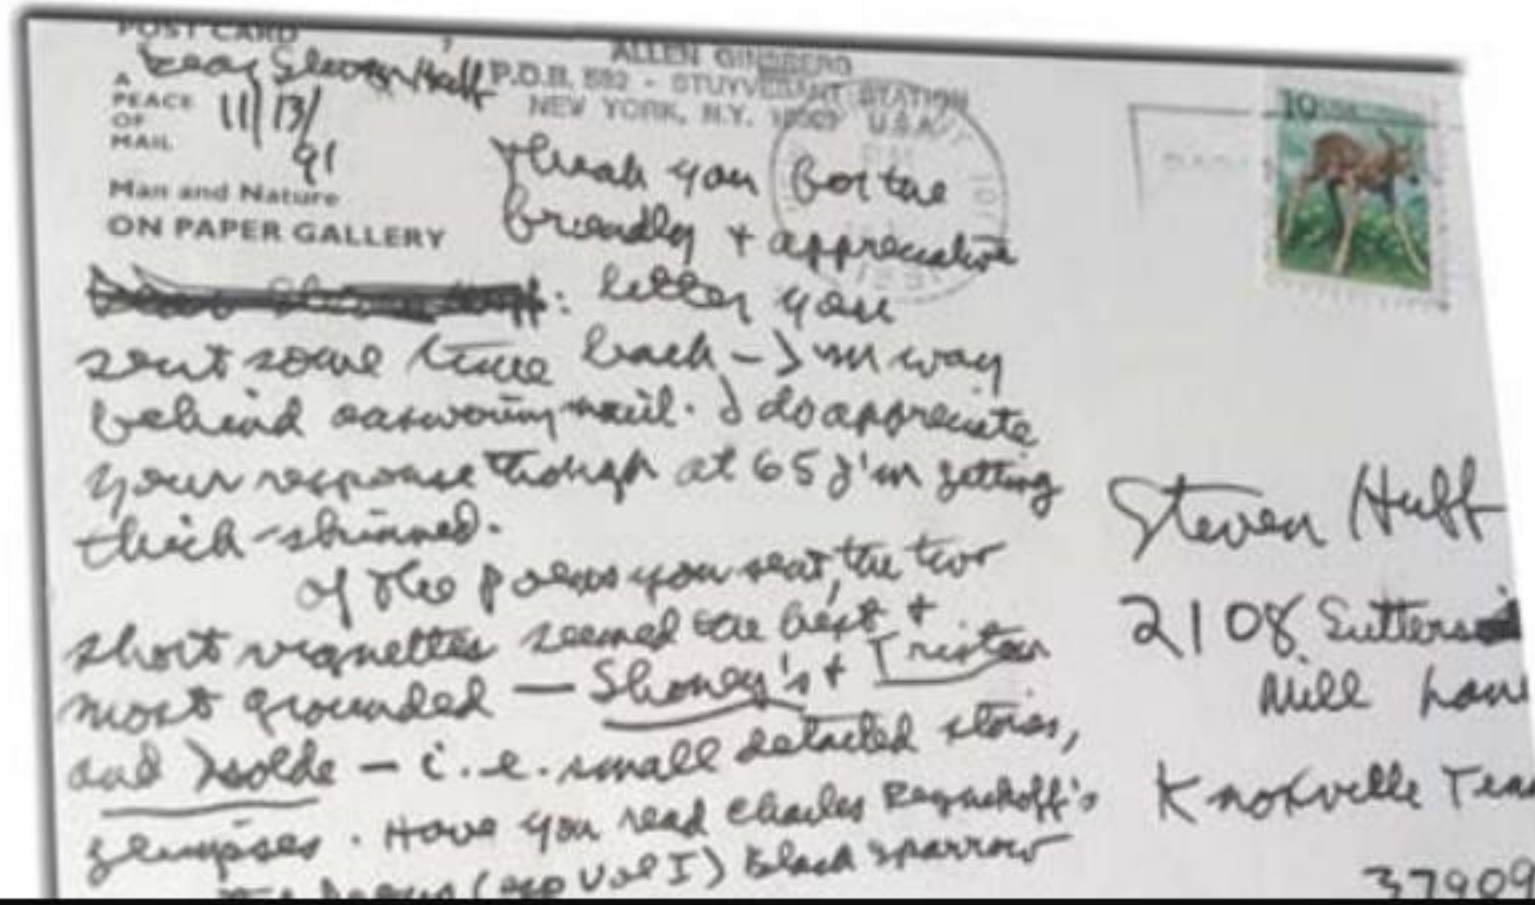 POST CARD
Dear Steven Huff
A
PEACE
OF
MAIL
11/13/
91
Man and Nature
ON PAPER GALLERY
ALLEN GINSBERG
P.O.B. 582 - STUYVESANT STATION
NEW YORK, N.Y. 10009 U.S.A.
Thank you for the
friendly + appreciative
: letter you
sent some time back – I'm way
behind answering mail. I do appreciate
your response though at 65 I'm getting
thick-skinned.
Of the poems you sent, the two
short vignettes seemed the best +
most grounded — Shoney's + Tristan
and Isolde — i.e. small detailed stories,
glimpses. Have you read Charles Reznikoff's
(esp Vol I) Black Sparrow
10 USA
Steven Huff
2108 Sutters
Mill Lane
Knoxville Tenn
37909